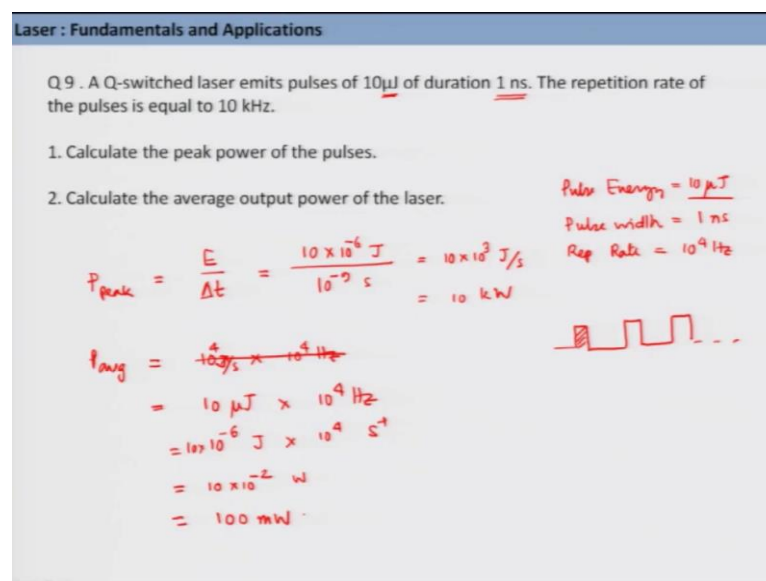 Laser : Fundamentals and Applications
Q 9 . A Q-switched laser emits pulses of 10μJ of duration 1 ns. The repetition rate of
the pulses is equal to 10 kHz.
1. Calculate the peak power of the pulses.
2. Calculate the average output power of the laser.
Pulse Energy = 10 μJ
Pulse width = 1 ns
Rep Rate = 10⁴ Hz
P_peak = E/Δt = 10 × 10⁻⁶ J / 10⁻⁹ s = 10 × 10³ J/s
= 10 kW
P_avg = 10⁴ J/s × 10⁴ Hz
= 10 μJ × 10⁴ Hz
= 10 × 10⁻⁶ J × 10⁴ s⁻¹
= 10 × 10⁻² W
= 100 mW